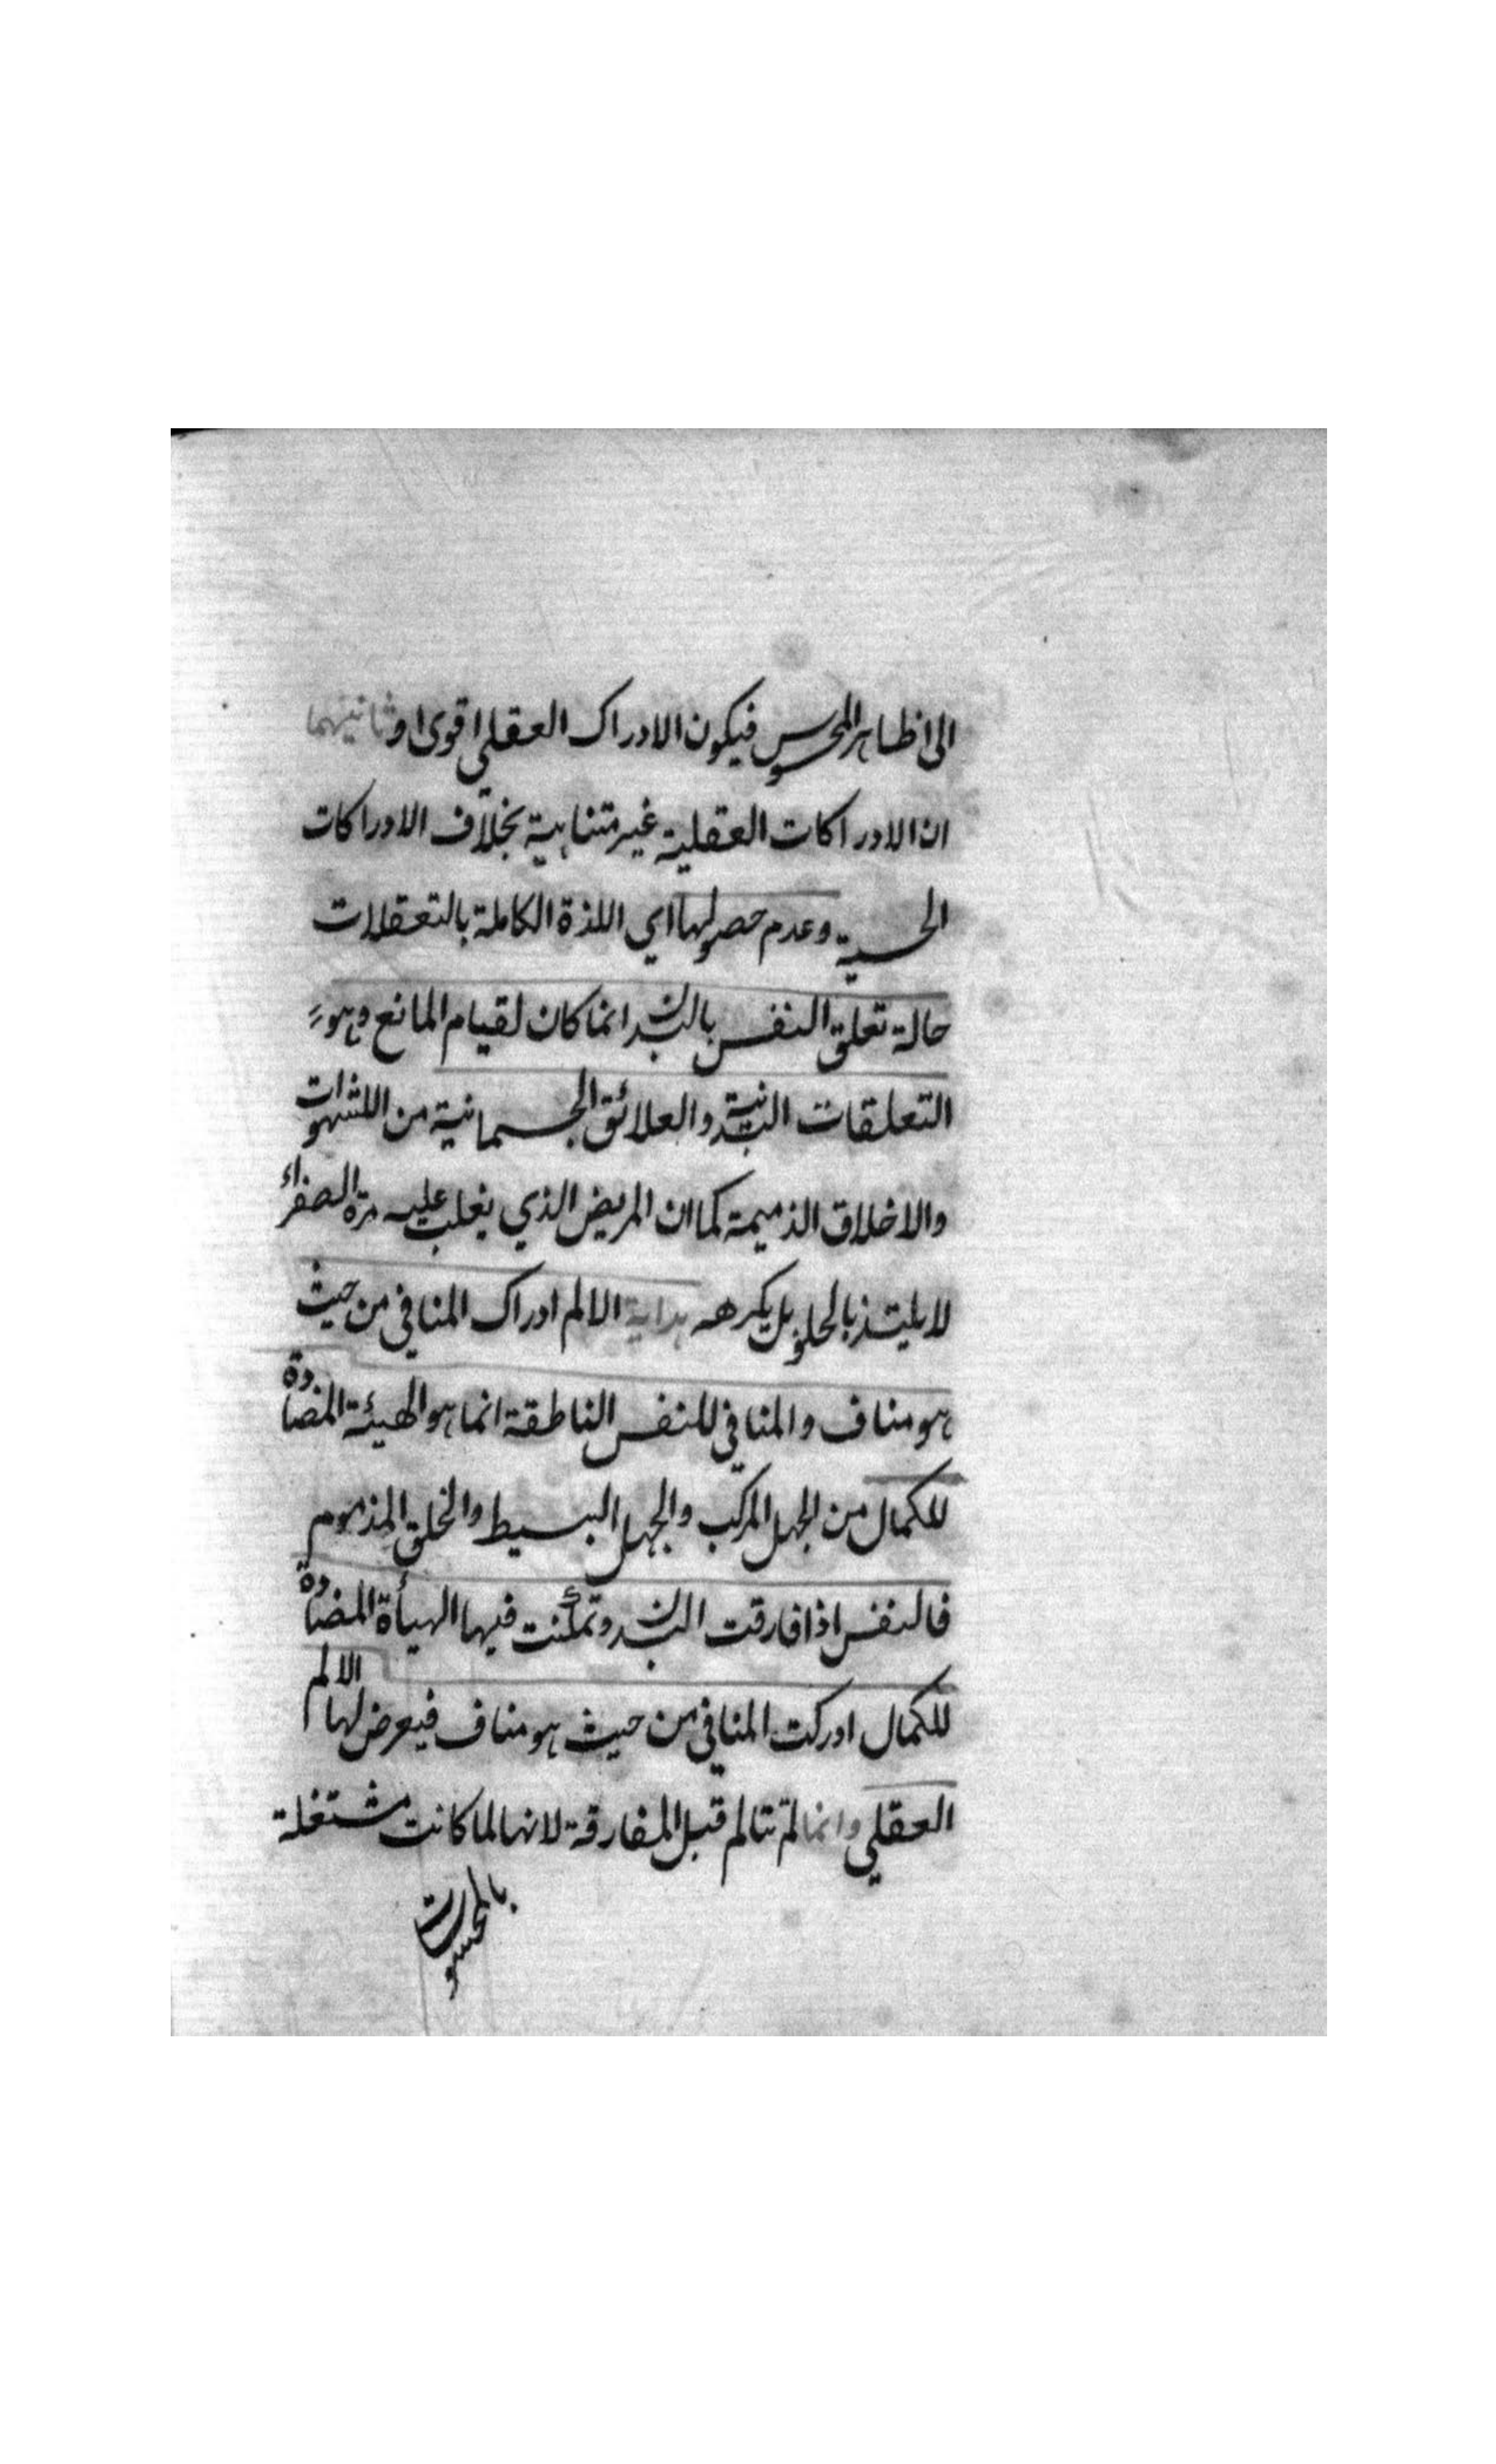 الى ظاهر المحسوس فيكون الادراك العقلي اقوى او ثانيهما
ان الادراكات العقلية غير متناهية بخلاف الادراكات
الحسية وعدم حصولها اي اللذة الكاملة بالتعقلات
حالة تعلق النفس بالبدن انما كان لقيام المانع وهو
التعلقات البدنية والعلائق الجسمانية من الشهوات
والاخلاق الذميمة كما ان المريض الذي يغلب عليه مرة الصفراء
لا يلتذ بالحلو بل يكرهه هداية الالم ادراك المنافي من حيث
هو مناف والمنافي للنفس الناطقة انما هو الهيئة المضادة
للكمال من الجهل المركب والجهل البسيط والخلق المذموم
فالنفس اذا فارقت البدن وتمكنت فيها الهيأة المضادة
للكمال ادركت المنافي من حيث هو مناف فيعرض لها الالم
العقلي وانما لم تتالم قبل المفارقة لانها لما كانت مشتغلة
بالمحسوسات